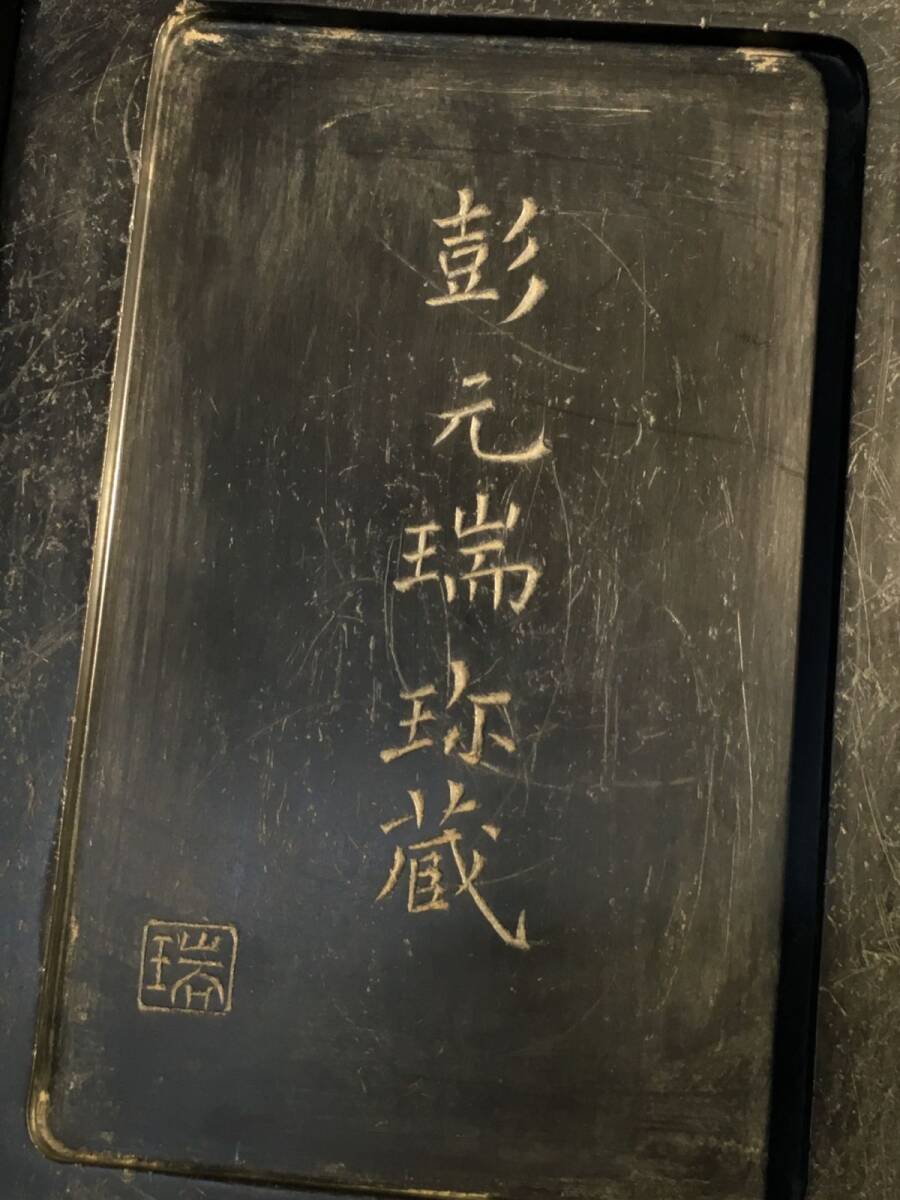 彭元瑞珎蔵
瑞